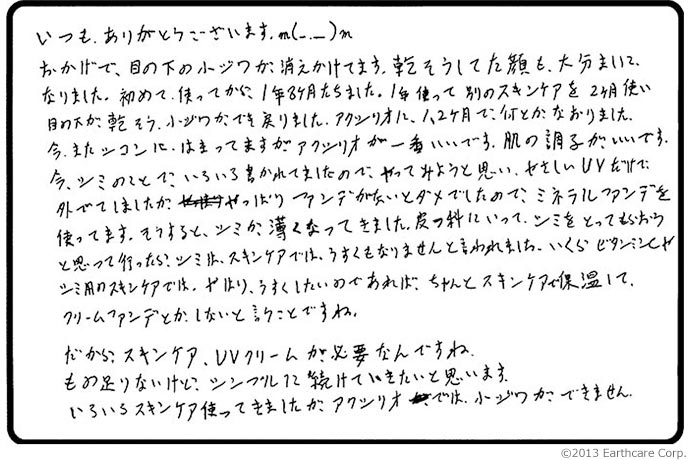 いつも、ありがとうございます。m(_ _)m
おかげで、目の下の小ジワが、消えかけてます。乾そうしてた顔も、大分まいに、
なりました。初めて、使ってから、1年8ヶ月たちました。1年使って別のスキンケアを2ヶ月使い
目の下が、乾そう、小ジワが、でき戻りました。アクシリオに、1、2ヶ月で、何とか、なおりました。
今、またシコンに、はまってますがアクシリオが一番いいです。肌の調子がいいです。
今、シミのことで、いろいろ書かれてましたので、やってみようと思い、やさしいUVだけで、
外でてましたが、やっぱりファンデがないとダメでしたので、ミネラルファンデを
使ってます。そうすると、シミが、薄くなってきました。皮フ科にいって、シミをとってもらおう
と思って行ったら、シミは、スキンケアでは、うすくもなりませんと言われました。いくらビタミンCや
シミ用のスキンケアでは。やはり、うすくしたいのであれば、ちゃんとスキンケアで保温して、
クリームファンデとか、しないと言うことですね。
だから、スキンケア、UVクリームが必要なんですね。
もの足りないけど、シンプルに続けていきたいと思います。
いろいろスキンケア使ってきましたが、アクシリオでは、小ジワが、できません。
©2013 Earthcare Corp.